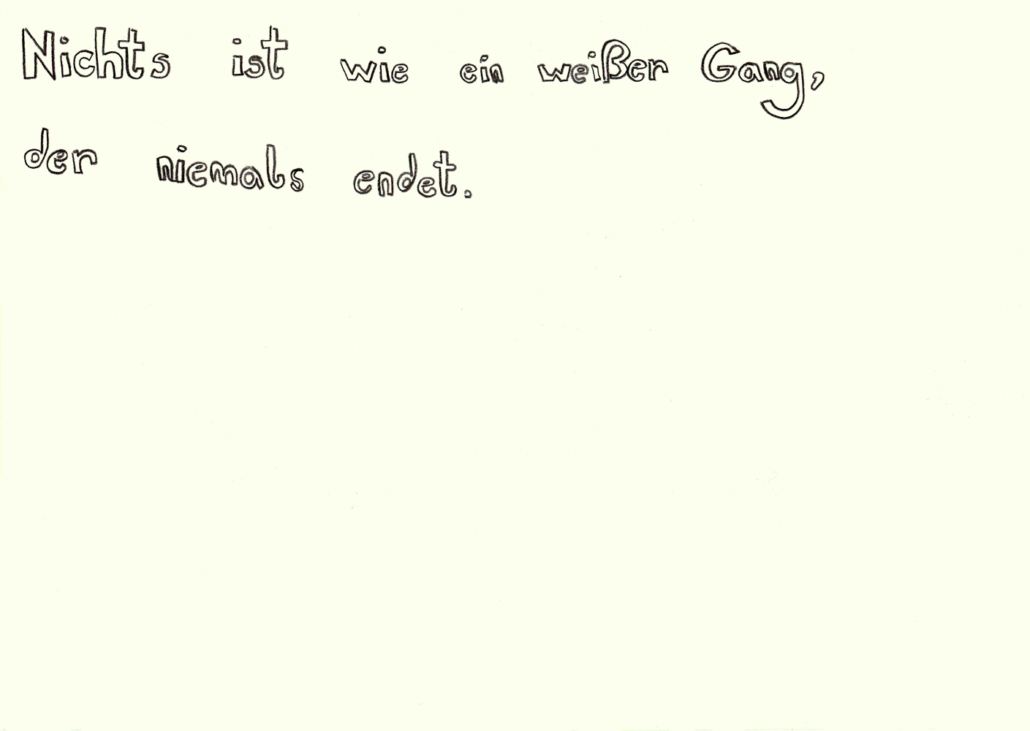 Nichts ist wie ein weißer Gang,
der niemals endet.